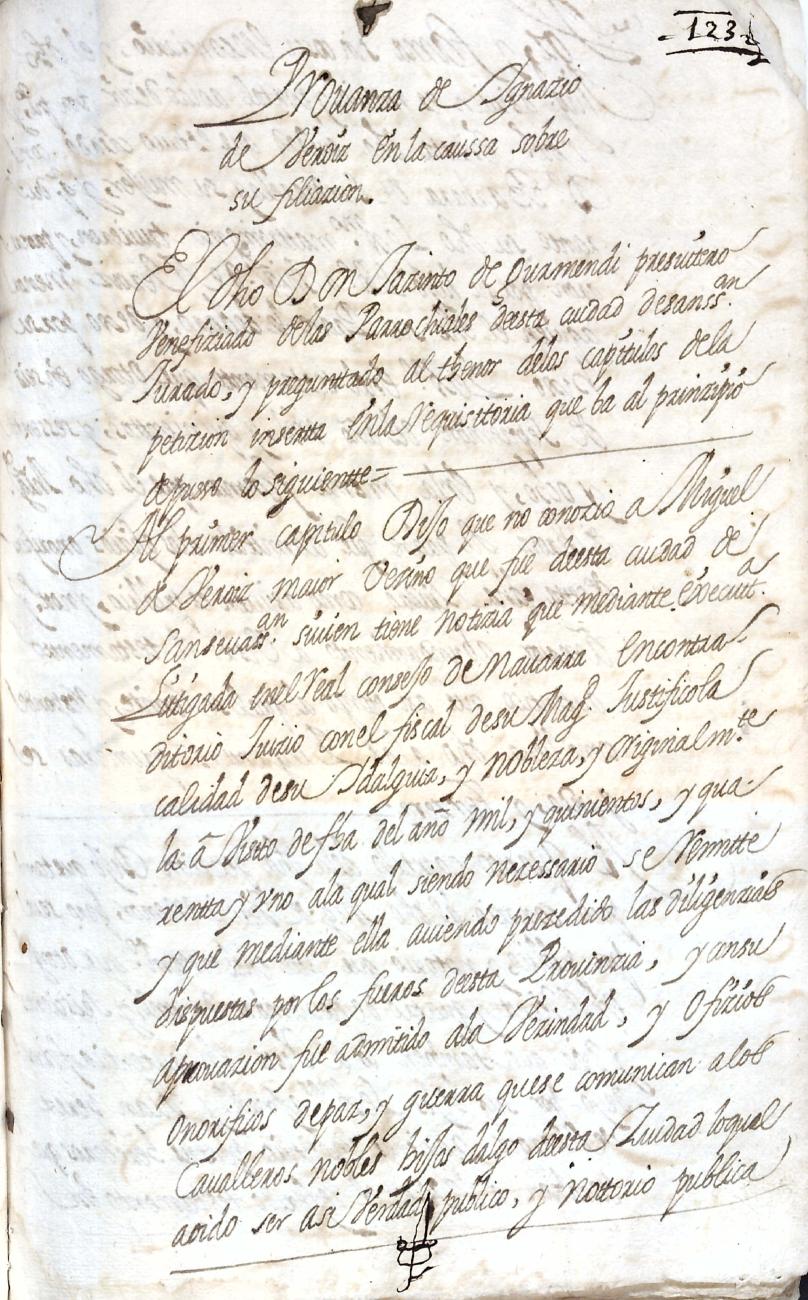 -123-
Prouanza de Ygnazio
de Veroiz en la caussa sobre
su filiazion.
El dho Don Jazinto de Guramendi presuitero
Venefiziado delas Parrochiales desta ciudad desanss.an
Jurado, y preguntado al thenor delos capitulos dela
petizion insertta enla Requisitoria que ba al prinzipio
depuso lo siguientte=
Al primer capitulo Dijo que no conozio a Miguel
de Veroiz maior Vezino que fue deesta ciudad de
Sanseuass.an siuien tiene notizia que mediante execut.a
Litigada enel Real conssejo de Nauarra encontra
ditorio Juizio conel fiscal desu Mag.d Justificola
calidad desu Ydalguia, y nobleza, y originalm.te
la a Visto de fha del año mil, y quinientos, y qua-
rentta y vno ala qual siendo nezessario se Remitte
y que mediante ella auiendo prezedido las diligenzias
dispuestas por los fueros desta Prouinzia, y ansu
aprouazion fue admitido ala Vezindad, y Ofizios
Onorificos depaz, y guerra quese comunican alos
Caualleros nobles hijos dalgo deesta Ziudad loqual
aoido ser asi Verdad publico, y Nottorio publica